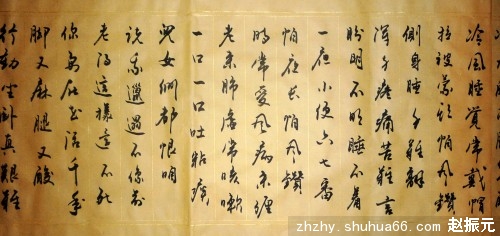 冷風睡覺常戴帽
拉被蒙頭怕風鑽
側身睡手難翻
渾身疼痛苦難言
盼明不明睡不着
一夜小便六七番
怕夜長怕風鑽
時常受風病來纏
老來肺虛常咳嗽
一口一口吐粘痰
兒女們都恨咱
說我邋遢不像前
老得這樣還不死
你在世活千年
腳又麻腿又酸
行動坐卧真艱難
zhzhy.shuhua66.com 赵振元